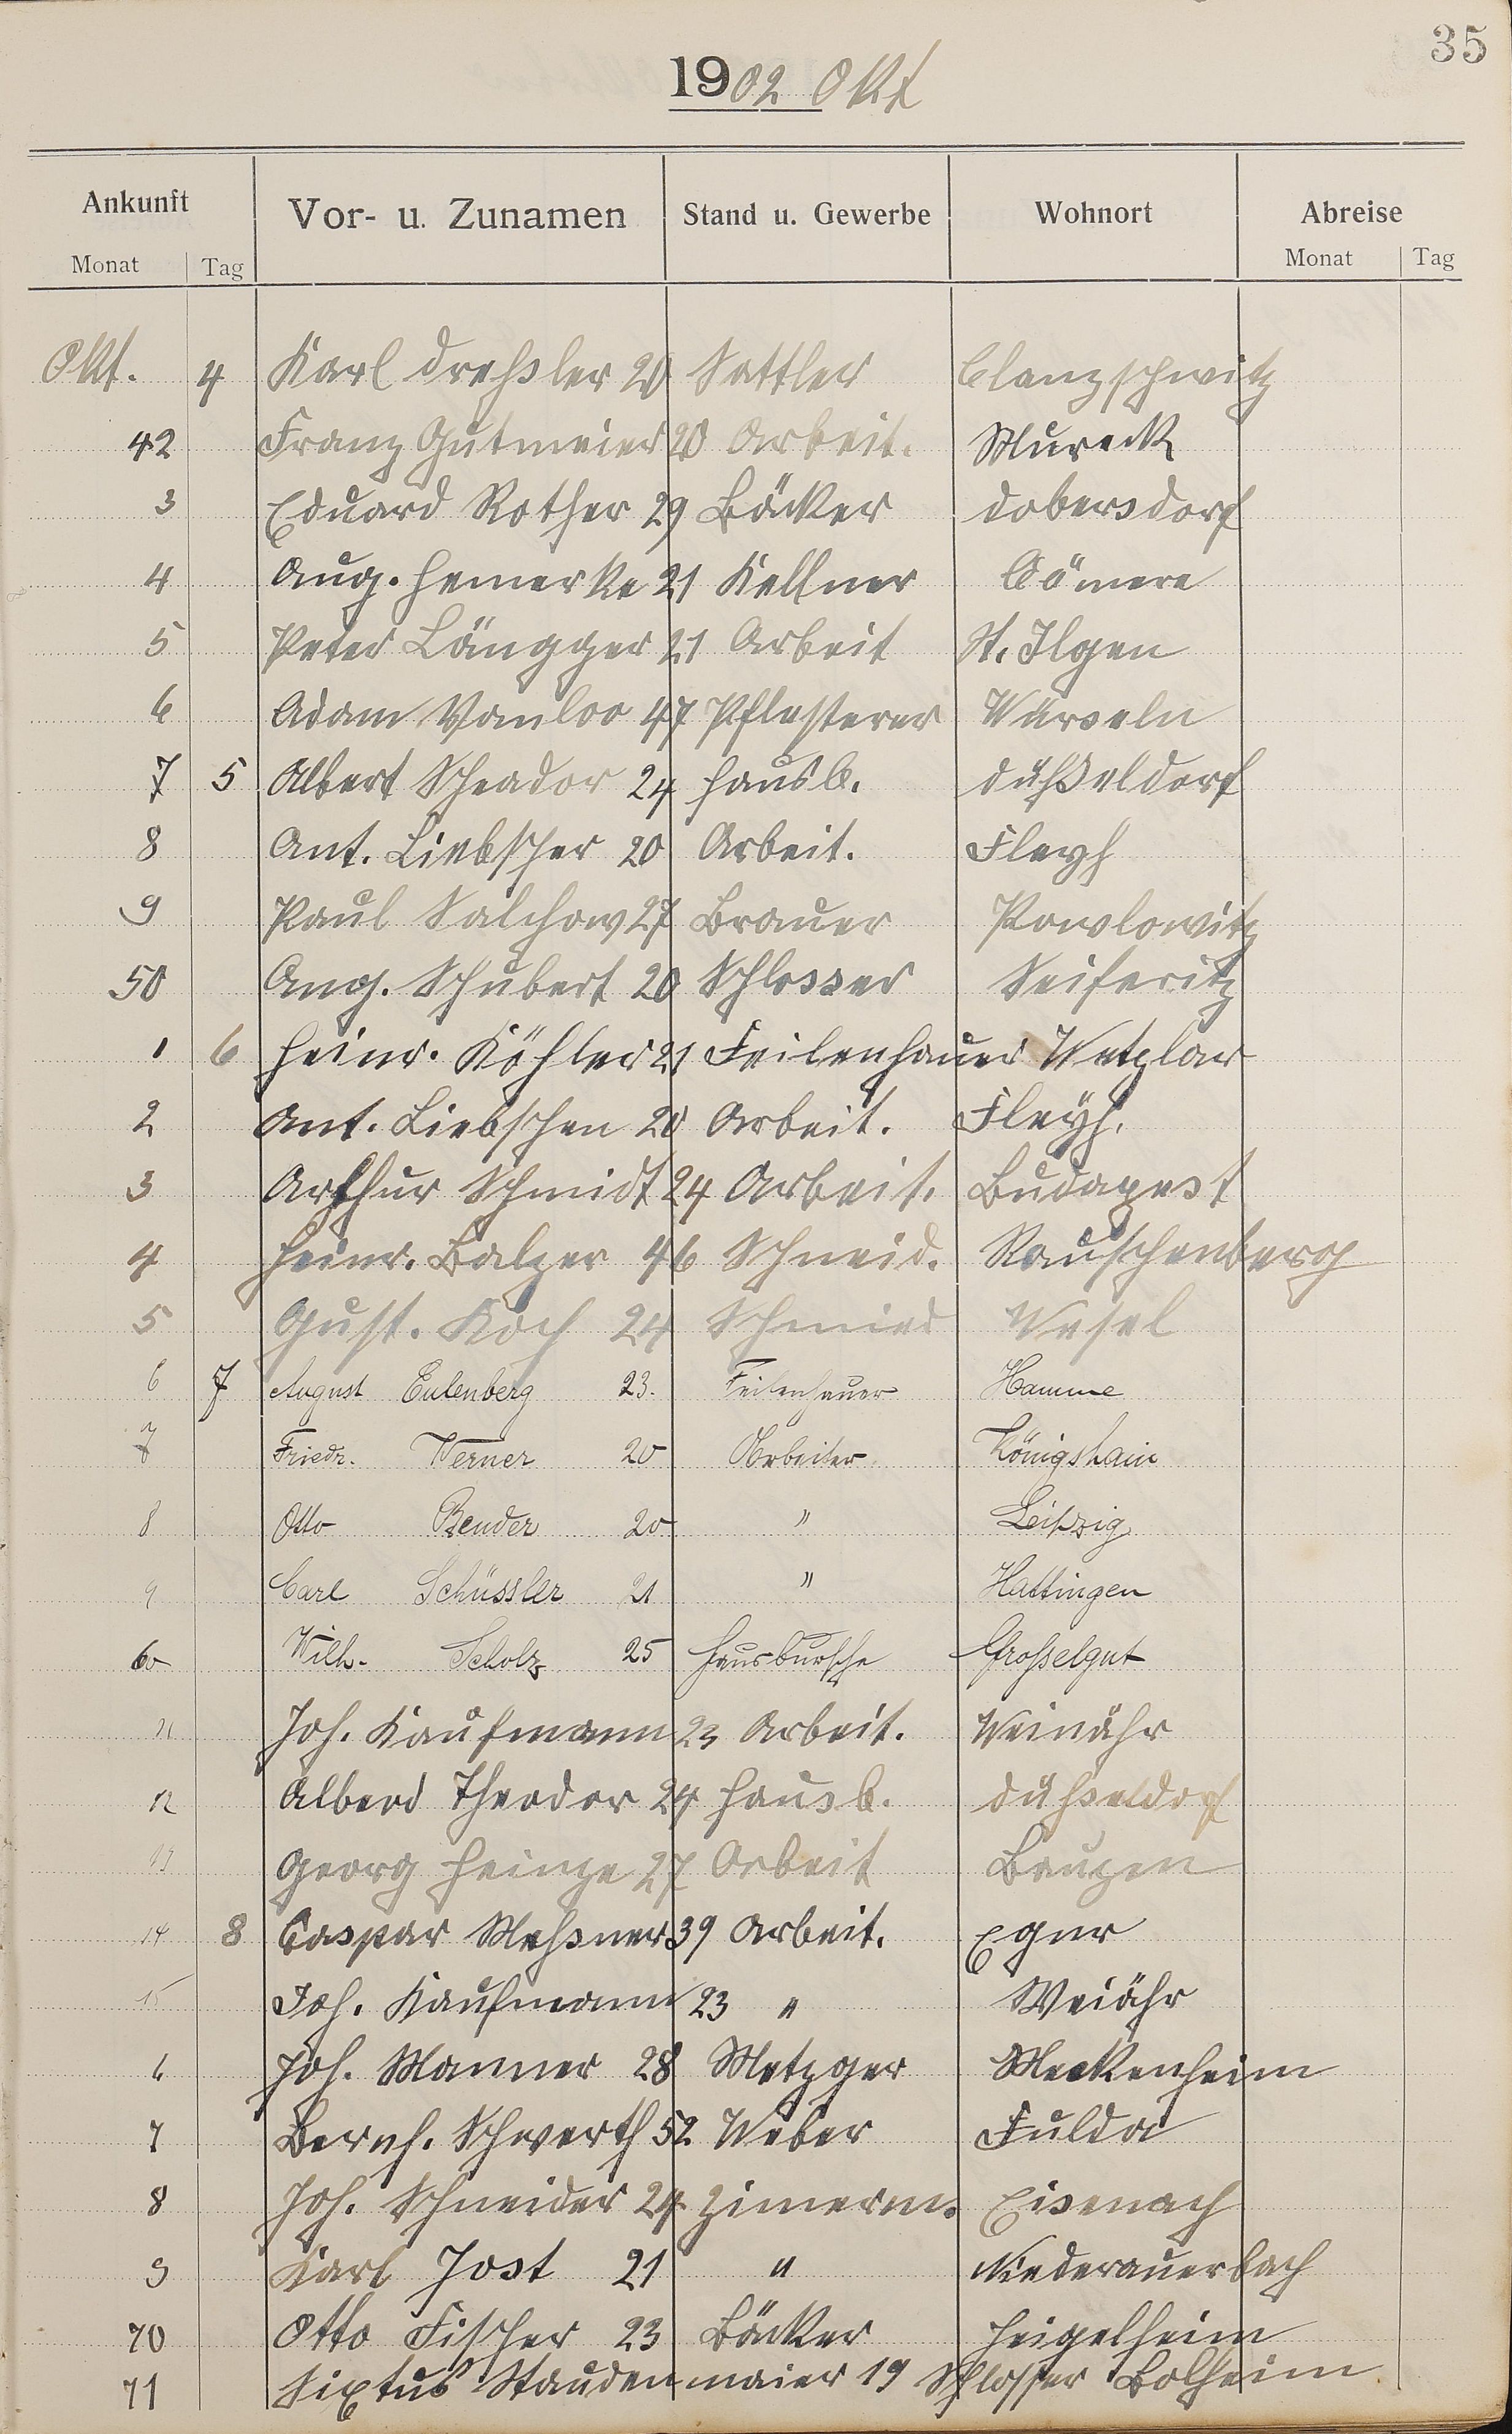 35
1902 Okt
Ankunft Vor- u. Zunamen Stand u. Gewerbe Wohnort Abreise
Monat Tag Monat Tag
Okt. 4 Karl Dreßler 20 Sattler Clanzschwitz
42 Franz Gutmeier 20 Arbeit. Mureck
3 Eduard Rother 29 Bäcker Dobersdorf
4 Aug. Hemerke 21 Kellner Cömere
5 Peter Längger 21 Arbeit St. Ilgen
6 Adam Vanloo 47 Pflasterer Würseln
7 5 Albert Theador 24 Hausb. Düßeldorf
8 Ant. Liebscher 20 Arbeit. Fleyh
9 Paul Salchow 27 Brauer Pawlowitz
50 Aug. Schubert 20 Schlosser Seiferitz
1 6 Heinr. Köhler 21 Feilenhauer Wetzlar
2 Ant. Liebschen 20 Arbeit. Fleyh.
3 Arthur Schmidt 24 Arbeit. Budapest
4 Heinr. Balzer 46 Schneid. Rauschenberg
5 Gust. Koch 24 Schmied Wesel
6 7 August Eulenberg 23. Feilenhauer Hamme
7 Friedr. Werner 20 Arbeiter Königshain
8 Otto Bender 20 " Leipzig
9 Carl Schüssler 21 " Hattingen
60 Wilh. Scholz 25 Hausbursche Großelgut
11 Joh. Kaufmann 23 Arbeit. Weinähr
12 Alberd Theodor 24 Hausb. Düßseldorf
13 Georg Heinze 27 Arbeit Bauzen
14 8 Caspar Meßsner 39 Arbeit. Eger
15 Joh. Kaufmann 23 " Weiähr
6 Joh. Manner 28 Metzger Meckenheim
7 Bernh. Schwerth 52 Weber Fulda
8 Joh. Schneider 24 Zimerm. Eisenach
9 Karl Jost 21 " Niederauerbach
70 Otto Fischer 23 Bäcker Heigelheim
71 Sixtus Staudenmaier 19 Schlosser Bolheim